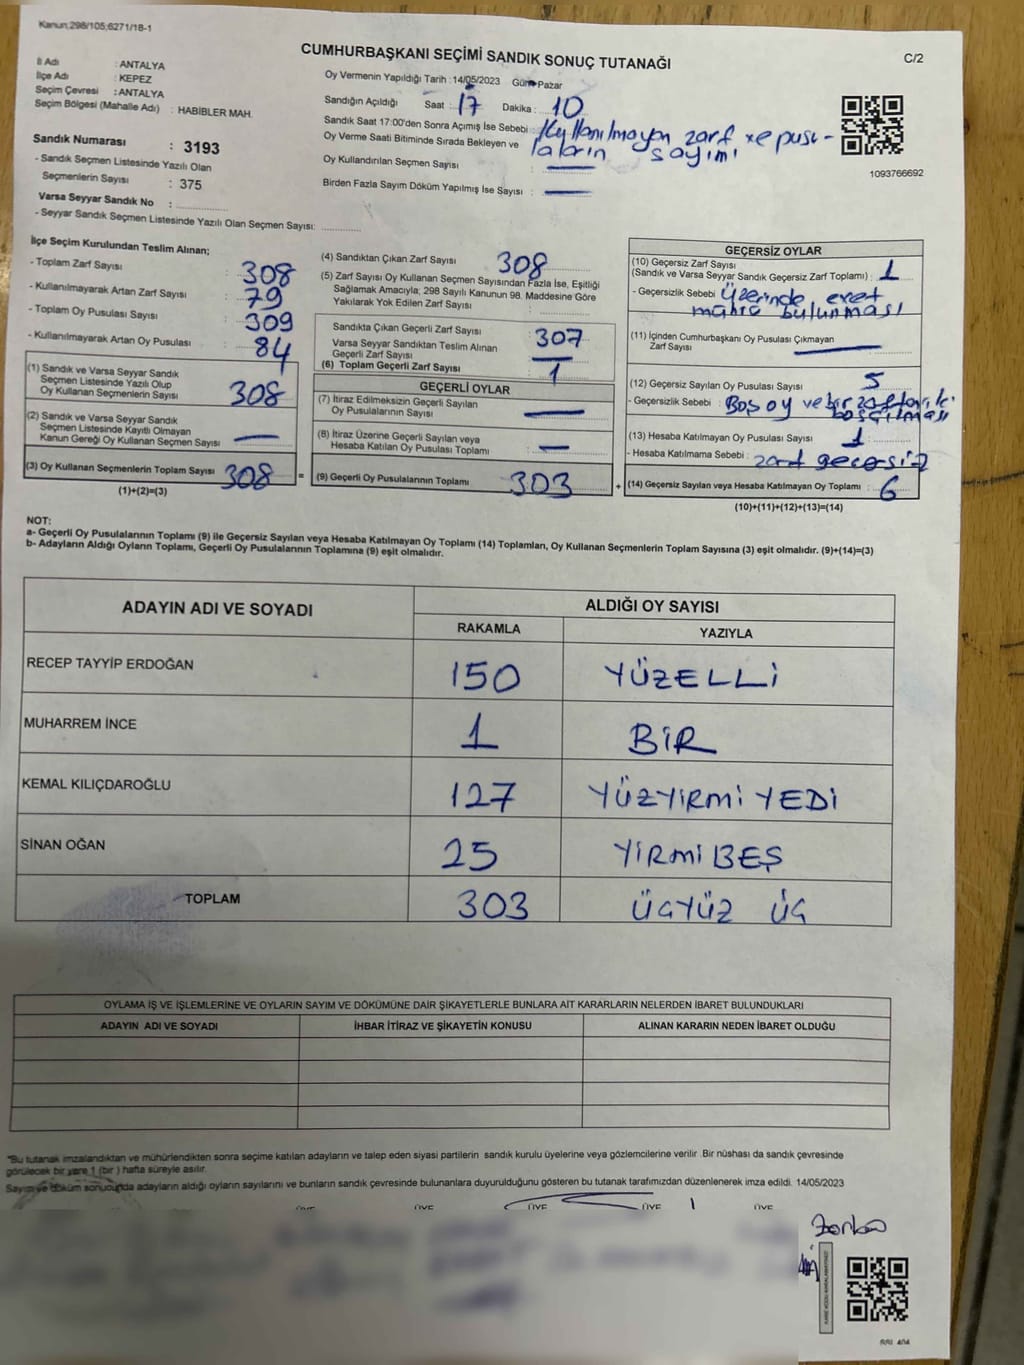 Kanun:298/105;6271/18-1
CUMHURBAŞKANI SEÇİMİ SANDIK SONUÇ TUTANAĞI
C/2
İl Adı : ANTALYA
İlçe Adı : KEPEZ
Seçim Çevresi : ANTALYA
Seçim Bölgesi (Mahalle Adı) : HABİBLER MAH.
Sandık Numarası : 3193
- Sandık Seçmen Listesinde Yazılı Olan
Seçmenlerin Sayısı : 375
Varsa Seyyar Sandık No :
- Seyyar Sandık Seçmen Listesinde Yazılı Olan Seçmen Sayısı:
Oy Vermenin Yapıldığı Tarih : 14/05/2023 Gün Pazar
Sandığın Açıldığı Saat : 17 Dakika : 10
Sandık Saat 17:00'den Sonra Açımış İse Sebebi : Kullanılmayan zarf ve pusu-
Oy Verme Saati Bitiminde Sırada Bekleyen ve laların sayımı
Oy Kullandırılan Seçmen Sayısı :
Birden Fazla Sayım Döküm Yapılmış İse Sayısı :
1093766692
İlçe Seçim Kurulundan Teslim Alınan;
- Toplam Zarf Sayısı : 308
- Kullanılmayarak Artan Zarf Sayısı : 79
- Toplam Oy Pusulası Sayısı : 309
- Kullanılmayarak Artan Oy Pusulası : 84
(1) Sandık ve Varsa Seyyar Sandık
Seçmen Listesinde Yazılı Olup
Oy Kullanan Seçmenlerin Sayısı : 308
(2) Sandık ve Varsa Seyyar Sandık
Seçmen Listesinde Kayıtlı Olmayan
Kanun Gereği Oy Kullanan Seçmen Sayısı :
(3) Oy Kullanan Seçmenlerin Toplam Sayısı : 308
(1)+(2)=(3)
=
(4) Sandıktan Çıkan Zarf Sayısı : 308
(5) Zarf Sayısı Oy Kullanan Seçmen Sayısından Fazla İse, Eşitliği
Sağlamak Amacıyla, 298 Sayılı Kanunun 98. Maddesine Göre
Yakılarak Yok Edilen Zarf Sayısı :
Sandıkta Çıkan Geçerli Zarf Sayısı : 307
Varsa Seyyar Sandıktan Teslim Alınan
Geçerli Zarf Sayısı :
(6) Toplam Geçerli Zarf Sayısı : 1
GEÇERLİ OYLAR
(7) İtiraz Edilmeksizin Geçerli Sayılan
Oy Pusulalarının Sayısı :
(8) İtiraz Üzerine Geçerli Sayılan veya
Hesaba Katılan Oy Pusulası Toplamı :
(9) Geçerli Oy Pusulalarının Toplamı : 303
+
GEÇERSİZ OYLAR
(10) Geçersiz Zarf Sayısı
(Sandık ve Varsa Seyyar Sandık Geçersiz Zarf Toplamı) : 1
- Geçersizlik Sebebi : Üzerinde evet
mührü bulunması
(11) İçinden Cumhurbaşkanı Oy Pusulası Çıkmayan
Zarf Sayısı :
(12) Geçersiz Sayılan Oy Pusulası Sayısı : 5
- Geçersizlik Sebebi : Boş oy ve bir
(13) Hesaba Katılmayan Oy Pusulası Sayısı : 1
- Hesaba Katılmama Sebebi : zarf geçersiz
(14) Geçersiz Sayılan veya Hesaba Katılmayan Oy Toplamı : 6
(10)+(11)+(12)+(13)=(14)
NOT:
a- Geçerli Oy Pusulalarının Toplamı (9) ile Geçersiz Sayılan veya Hesaba Katılmayan Oy Toplamı (14) Toplamları, Oy Kullanan Seçmenlerin Toplam Sayısına (3) eşit olmalıdır. (9)+(14)=(3)
b- Adayların Aldığı Oyların Toplamı, Geçerli Oy Pusulalarının Toplamına (9) eşit olmalıdır.
ADAYIN ADI VE SOYADI ALDIĞI OY SAYISI
RAKAMLA YAZIYLA
RECEP TAYYİP ERDOĞAN 150 YÜZELLİ
MUHARREM İNCE 1 BİR
KEMAL KILIÇDAROĞLU 127 YÜZYİRMİ YEDİ
SİNAN OĞAN 25 YİRMİ BEŞ
TOPLAM 303 ÜÇYÜZ ÜÇ
OYLAMA İŞ VE İŞLEMLERİNE VE OYLARIN SAYIM VE DÖKÜMÜNE DAİR ŞİKAYETLERLE BUNLARA AİT KARARLARIN NELERDEN İBARET BULUNDUKLARI
ADAYIN ADI VE SOYADI İHBAR İTİRAZ VE ŞİKAYETİN KONUSU ALINAN KARARIN NEDEN İBARET OLDUĞU
"Bu tutanak imzalandıktan ve mühürlendikten sonra seçime katılan adayların ve talep eden siyasi partilerin sandık kurulu üyelerine veya gözlemcilerine verilir. Bir nüshası da sandık çevresinde
görülecek bir yere 1 (bir ) hafta süreyle asılır.
Sayım ve döküm sonucunda adayların aldığı oyların sayılarını ve bunların sandık çevresinde bulunanlara duyurulduğunu gösteren bu tutanak tarafımızdan düzenlenerek imza edildi. 14/05/2023
ÜYE ÜYE ÜYE ÜYE ÜYE